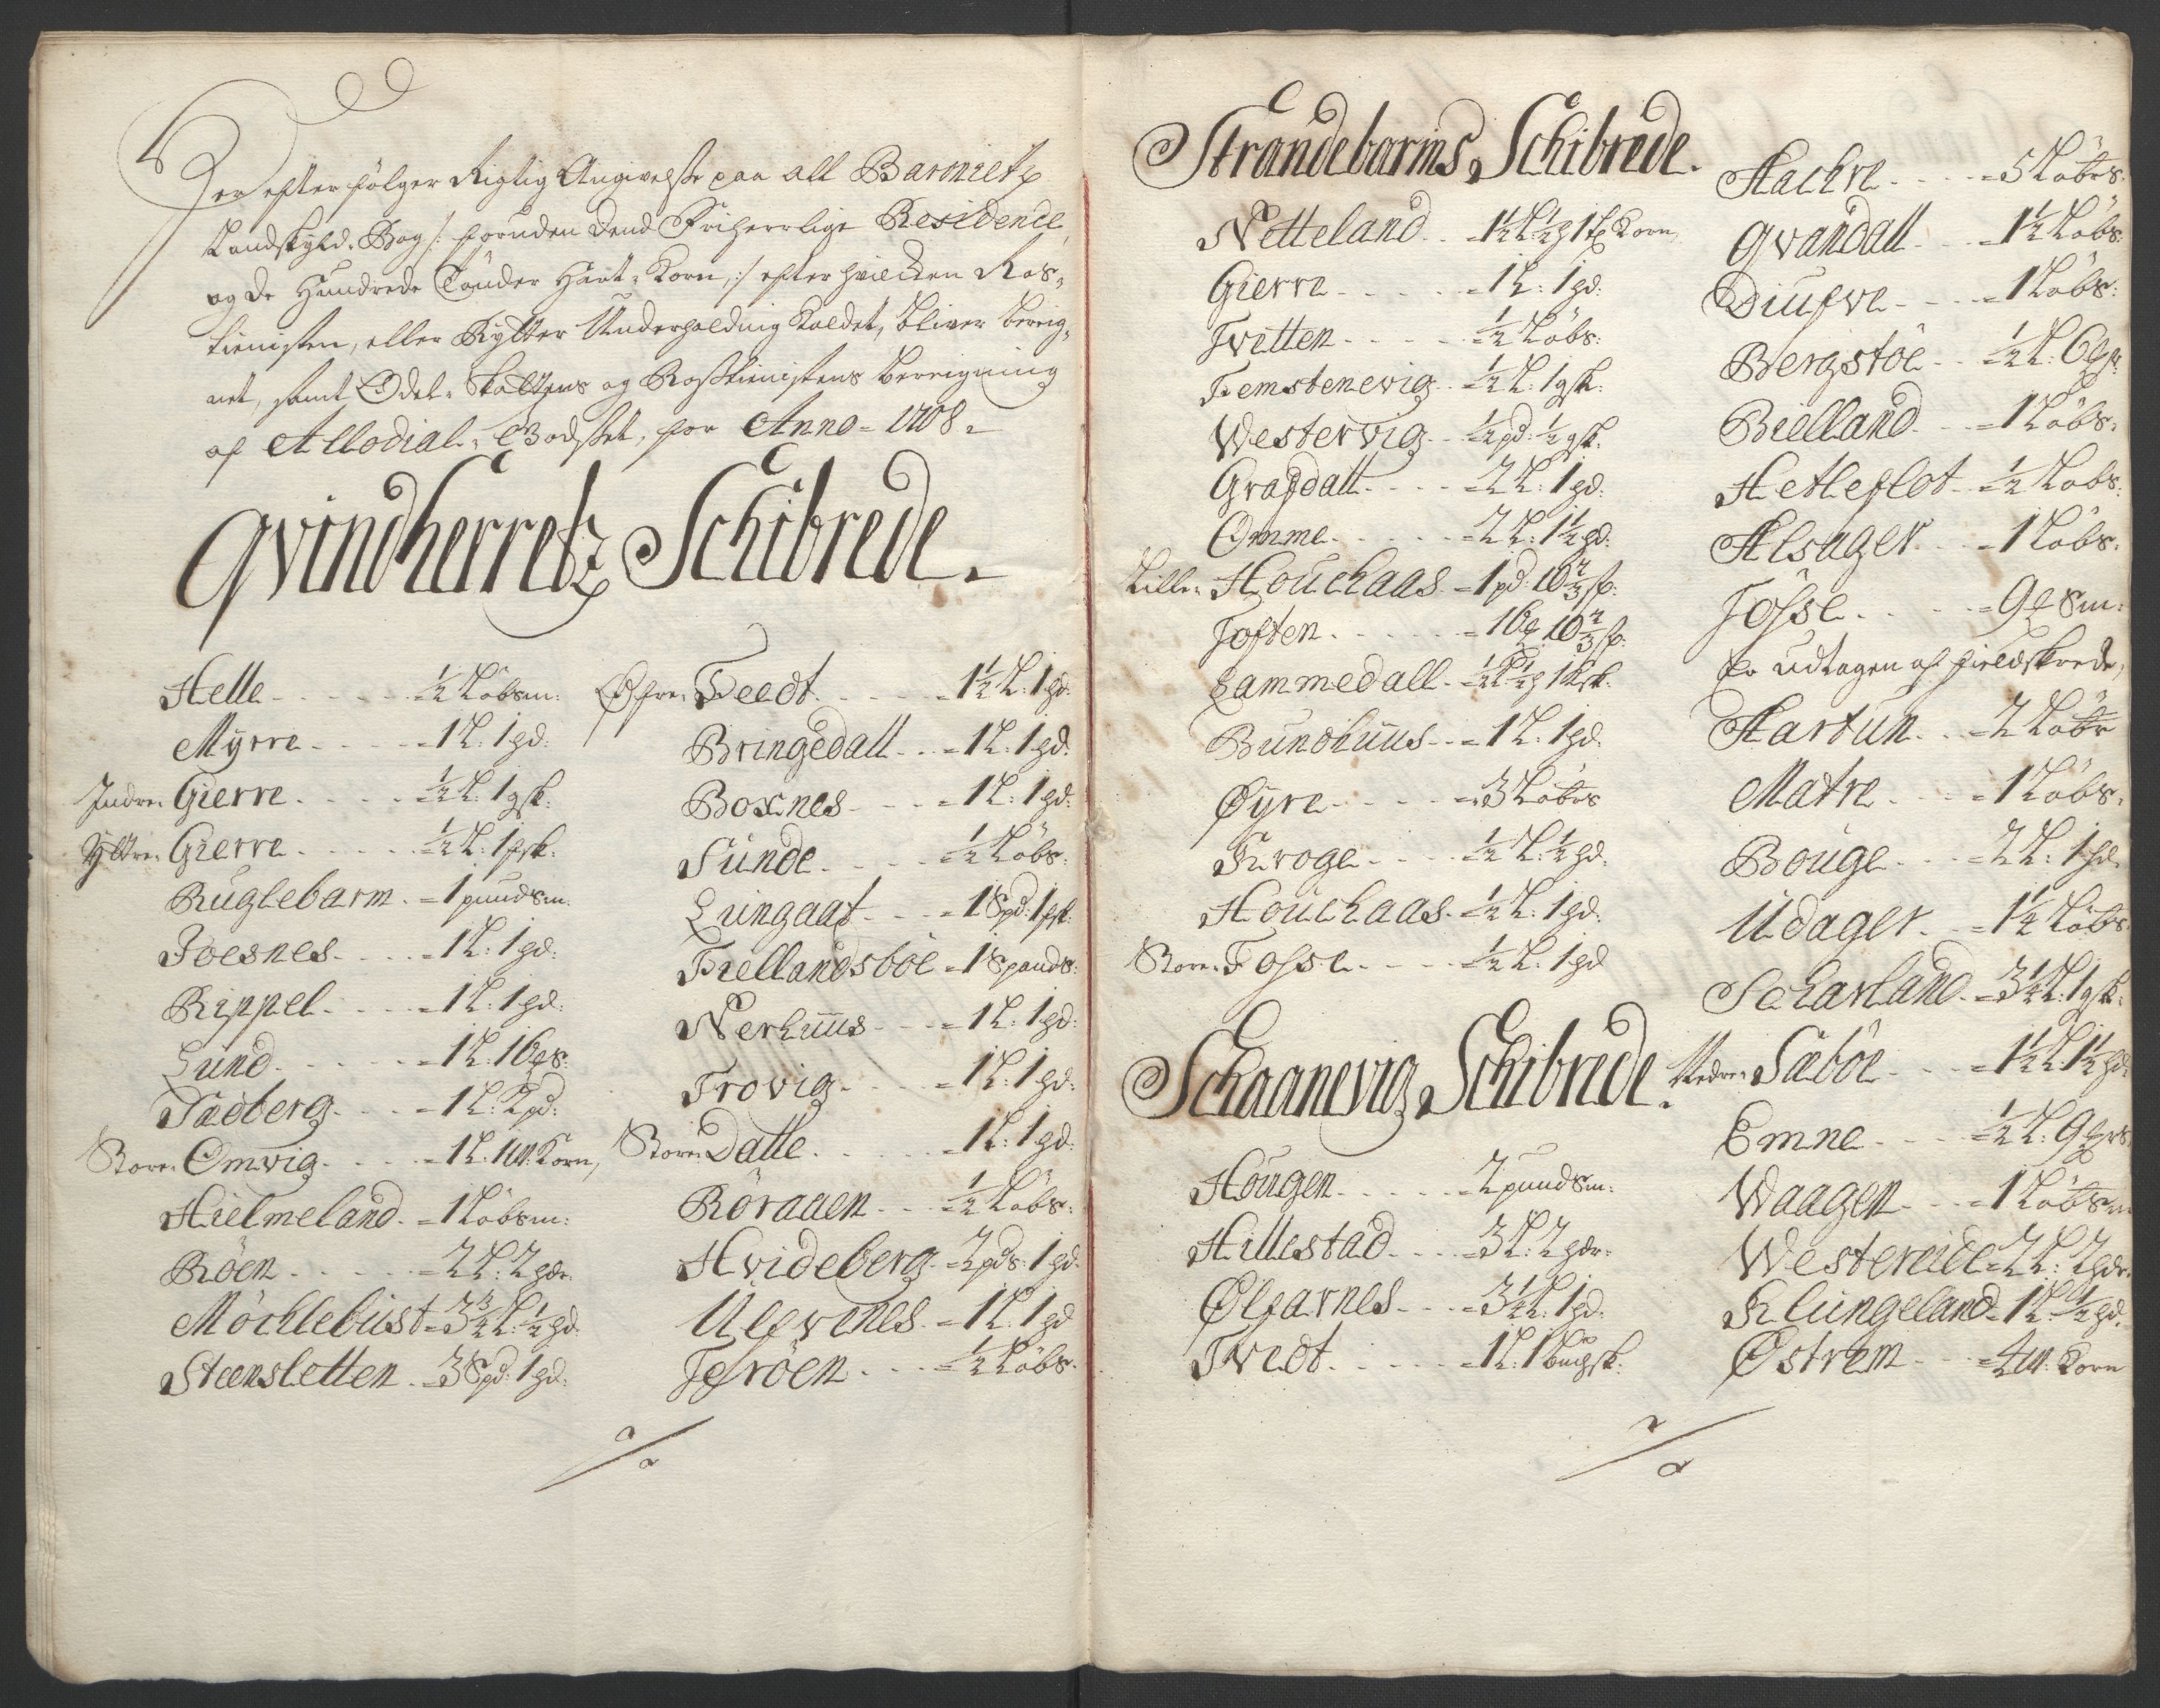 Her efter følger Rigtig Angivelse paa all Baroniets
Landskyld. Bog /: foruden dend Friherrlige Residence,
og de Hundrede Tønder Hart-Korn, :/ efter hvilcken Ros-
tienisten, eller Rytter Underholdning kaldet, bliver bereig-
net, samt Odel-Skattens og Rosstienistens bereigning
af Allodial-Godset, for Anno-1708-
Qvindherretz Schibrede.
Helle - - - - - ½ Løbsm:
Myrre - - - - 1 L: 1 hd:
Indre- Gierre - - - - ½ L: 1 gsk:
Yttre- Gierre - - - - ½ L: 1 fsk:
Ruglebarm - 1 pundsm:
Joesnes - - - - 1 L: 1 hd:
Rippel - - - - 1 L: 1 hd:
Lund - - - - 1 L: 16 gs:
Sædberg - - - 1 L: 2 pd:
Store- Omvig - - - - 1 L: 1 Korn,
Hielmeland - 1 Løbsm:
Røen - - - - 2 L: 2 hdr:
Møchlebust - 3¾ L: ½ hd:
Steensletten - 3 Spd: 1 hd:
Øfre- Feedt - - - - 1½ L: 1 hd:
Bringedall - - 1 L: 1 hd:
Boxnes - - - 1 L: 1 hd:
Sunde - - - - ½ Løbs:
Lungaat - - - 1 Spd: 1 fsk:
Fiellandsbøe - 1 Spands:
Nerhuus - - - 1 L: 1 hd:
Trovig - - - - 1 L: 1 hd:
Store- Dalle - - - - 1 L: 1 hd:
Røraaen - - - ½ Løbs:
Hvideberg - 2 pds: 1 hd:
Ulfvenes - 1 L: 1 hd
Terøen - - - ½ Løbs:
Strandebarms Schibrede.
Netteland - - 1½ L: ½ 1 Korn,
Gierre - - - - 1 L: 1 hd:
Tvetten - - - - ½ Løbs:
Femstenevig - ½ L: 1 gsk:
Westervig - ½ pd: ½ gsk:
Grafdall - - - 2 L: 1 hd:
Omme - - - - 2 L: 1½ hd:
Lille- Houchaas - 1 pd: 10⅔
Toften - - - - 16 10⅔
Lammedall - ½ L: ½ 1 ksk:
Bundhuus - - 1 L: 1 hd:
Øyre - - - - 3 Løbs
Kroge - - - ½ L: ½ hd:
Houchaas - ½ L: 1 hd:
Store- Fosse - - - - ½ L: 1 hd
Schaanevig Schibrede.
Hougen - - - - 2 pundsm:
Hillestad - - - 3 L: 2 hdr:
Ølfarnes - - - 3½ L: 1 hd:
Tvedt - - - - 1 L: 1 buchsk:
Hachre - - - - 5 Løbs:
Qvandall - - 1½ Løbs:
Diufve - - - 1 Løbs:
Bergstøe - - ½ L: 6
Bielland - - 1 Løbs:
Hetleflot - ½ Løbs:
Alsager - - 1 Løbs:
Fosse - - - - 9 g Sm:
Er udtagen af fieldskrede,
Hartun - - 2 Løbr
Matre - - - 1 Løbs:
Bouge - - - 2 L: 1 hd
Udager - - 1½ Løbs:
Scharland - 3½ L: 1 gsk:
Nedre- Sæbøe - - - 1½ L: 1½ hd:
Emne - - - ½ L: 9
Waagen - - - 1 Løbsm
Westereide - 2 L: 2 hdr:
Klungeland - 1 L: ½ hd:
Østrem - - - 4 Korn